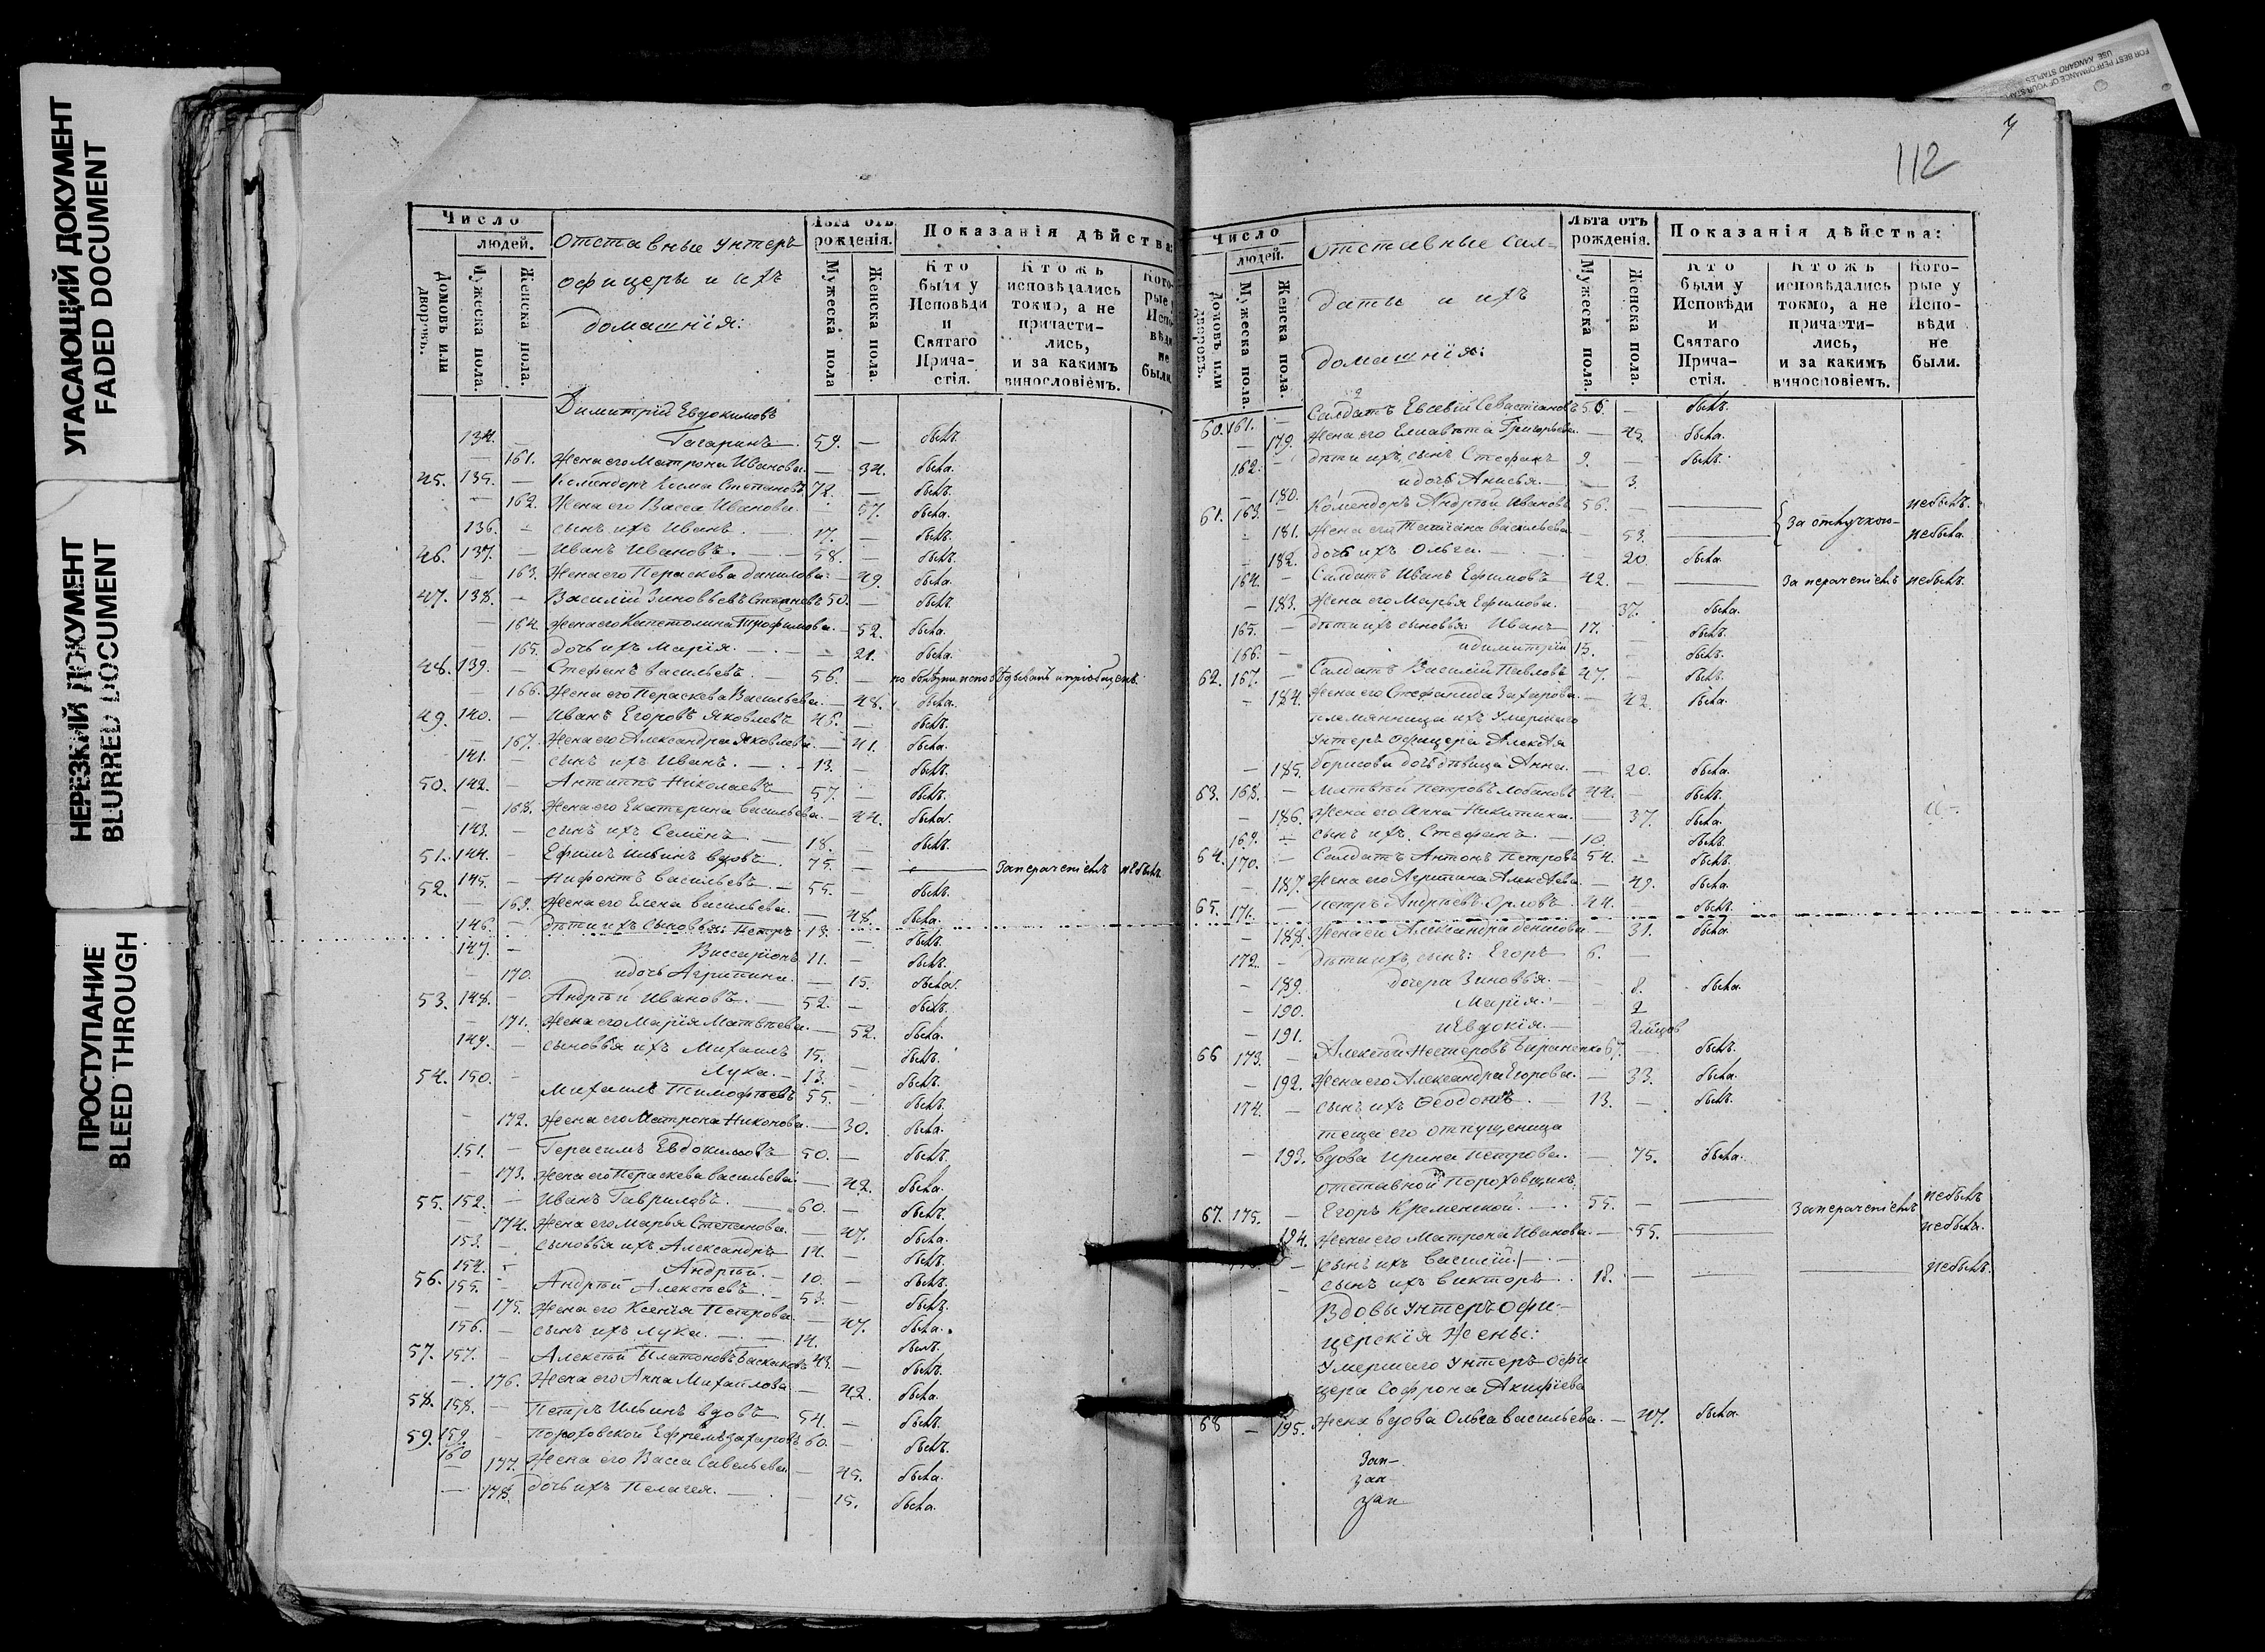 УГАСАЮЩИЙ ДОКУМЕНТ
FADED DOCUMENT
НЕРЕЗКИЙ ДОКУМЕНТ
BLURRED DOCUMENT
ПРОСТУПАНИЕ
BLEED THROUGH
FOR BEST PERFORMANCE OF YOUR STAPLER
USE KANGARO STAPLES
Число
людей.
Домовъ или дворовъ.
Мужеска пола.
Женска пола.
Отставные Унтеръ
офицеры и ихъ
домашнія:
Лѣта отъ рожденія.
Мужеска пола
Женска пола.
Показанія дѣйства:
Кто были у Исповѣди и Святаго Причастія.
Ктожъ исповѣдались токмо, а не причастились, и за какимъ винословіемъ.
Которые у Исповѣди не были.
Димитрій Евдокимовъ
134. — Гагаринъ 59. — былъ.
— 161. Жена его Матрона Иванова. — 34. была.
45. 135. — Комендоръ Козма Степановъ 72. — былъ.
— 162. Жена его Васса Иванова. — 57. была.
136. — сынъ ихъ Иванъ 17. — былъ.
46. 137. — Иванъ Ивановъ. 58. — былъ.
— 163. Жена его Параскева Данилова. — 49. была.
47. 138. — Василій Зиновьевъ 50. — былъ.
— 164. Жена его Капетолина Трофимова. — 52. была.
— 165. дочь ихъ Марія. — 21. была.
48. 139. — Стефанъ Васильевъ. 56. —
— 166. Жена его Пераскева Васильева. — 48. была.
49. 140. — Иванъ Егоровъ Яковлевъ 46. — былъ.
— 167. Жена его Александра Яковлева. — 41. была.
141. — сынъ ихъ Иванъ. 13. — былъ.
50. 142. — Антипъ Николаевъ 57. — былъ.
— 168. Жена его Екатерина Васильева. — 44. была.
143. — сынъ ихъ Семёнъ 18. — былъ.
51. 144. — Ефимъ Ильинъ вдовъ. 75. — — За нераченіемъ не былъ.
52. 145. — Нифонтъ Васильевъ. 55. — былъ.
— 169. Жена его Елена Васильева. — 48. была.
146. — дѣти ихъ сыновья: Петръ 13. былъ.
147. — Виссаріонъ 11. — былъ.
— 170. и дочь Агрипина. — 15. была.
53. 148. — Андрѣй Ивановъ. 52. — былъ.
— 171. Жена его Марія Матвѣева. — 52. была.
149. — сыновья ихъ Михаилъ 15. — былъ.
54. 150. — Лука. 13. — былъ.
Михаилъ Тимофѣевъ 55. — былъ.
— 172. Жена его Матрона Никонова. — 30. была.
151. — Герасимъ Евдокимовъ 50. — былъ.
— 173. Жена его Пераскева Васильева. — 42. была.
55. 152. — Иванъ Гавриловъ. 60. — былъ.
— 174. Жена его Марья Степанова. — 47. была.
153. — сыновья ихъ Александръ 14. — былъ.
154. — Андрѣй. 10. — былъ.
56. 155. — Андрѣй Алексѣевъ. 53. — былъ.
— 175. Жена его Ксенія Петрова. — 47. была.
156. — сынъ ихъ Лука. 14. былъ.
57. 157. — Алексѣй Платоновъ Баскаковъ 43. — былъ.
— 176. Жена его Анна Михайлова. — 42. была.
58. 158. — Петръ Ильинъ вдовъ. 54. — былъ.
59. 159. — Пороховской Ефремъ Захаровъ 60. — былъ.
160
— 177. Жена его Васса Савельева. — 45. была.
— 178. дочь ихъ Пелагея. — 15. была.
112
Число
людей.
Домовъ или дворовъ.
Мужеска пола.
Женска пола.
Отставные сол-
даты и ихъ
домашнія:
Лѣта отъ рожденія.
Мужеска пола.
Женска пола.
Показанія дѣйства:
Кто были у Исповѣди и Святаго Причастія.
Ктожъ исповѣдались токмо, а не причастились, и за какимъ винословіемъ.
Которые у Исповѣди не были.
60. 161. — Солдатъ Евсевій Севастіановъ 56. — былъ.
— 179. Жена его Елисавета Григорьева. — 45. была.
162. — дѣти ихъ, сынъ Стефанъ 9. — былъ.
— 180. и дочь Анисья. — 3.
61. 163. — Комендоръ Андрѣй Ивановъ 56. — небылъ.
— 181. Жена его Татіана Васильева — 53. — За отлучкою небыла.
— 182. дочь ихъ Ольга. — 20. была.
164. — Солдатъ Иванъ Ефимовъ 42. — — За нераченіемъ небылъ.
— 183. Жена его Марья Ефимова. — 37. была.
165. — дѣти ихъ сыновья: Иванъ 17. былъ.
166. — и Димитрій 15. — былъ.
62. 167. — Солдатъ Василій Павловъ 47. — былъ.
— 184. Жена его Стефанида Захарова — 42. была.
племянница ихъ Умершаго
Унтеръ Офицера Алексѣя
— 185. Борисова дочь дѣвица Анна. — 20. была.
63. 168. — Матвѣй Петровъ Лобановъ 44. — былъ.
— 186. Жена его Анна Никитина. — 37. была.
169. — сынъ ихъ Стефанъ. 10. былъ.
64. 170. — Солдатъ Антонъ Петровъ 54. — былъ.
— 187. Жена его Агрипина Алексѣева. — 49. была.
65. 171. — Петръ Андрѣевъ Орловъ. 44. — былъ.
— 188. Жена его Александра Денисова — 31. была.
172. — дѣти ихъ, сынъ: Егоръ 6. —
— 189. дочери Зиновья. — 8. была.
— 190. Марія. — 2
— 191. и Евдокія. —
66 173. — Алексѣй Нестеровъ Бараненко 67. — былъ.
— 192. Жена его Александра Егорова. — 33. была.
174. — сынъ ихъ Ѳеодоръ. 13. — былъ.
теща его отпущеница
— 193. вдова Ирина Петрова. — 75. была.
Отставной Пороховщикъ
67. 175. — Егоръ Кременской. 55. — — За нераченіемъ небылъ
194. Жена его Матрона Иванова. — 55. — небыла.
— сынъ ихъ Василій
— сынъ ихъ Викторъ 18. — — — небылъ.
Вдовы Унтеръ Офи-
церскія Жены:
Умершаго Унтеръ-Офи
цера Софрона Акифіева
68 — 195. Жена вдова Ольга Васильева. — 47. была.